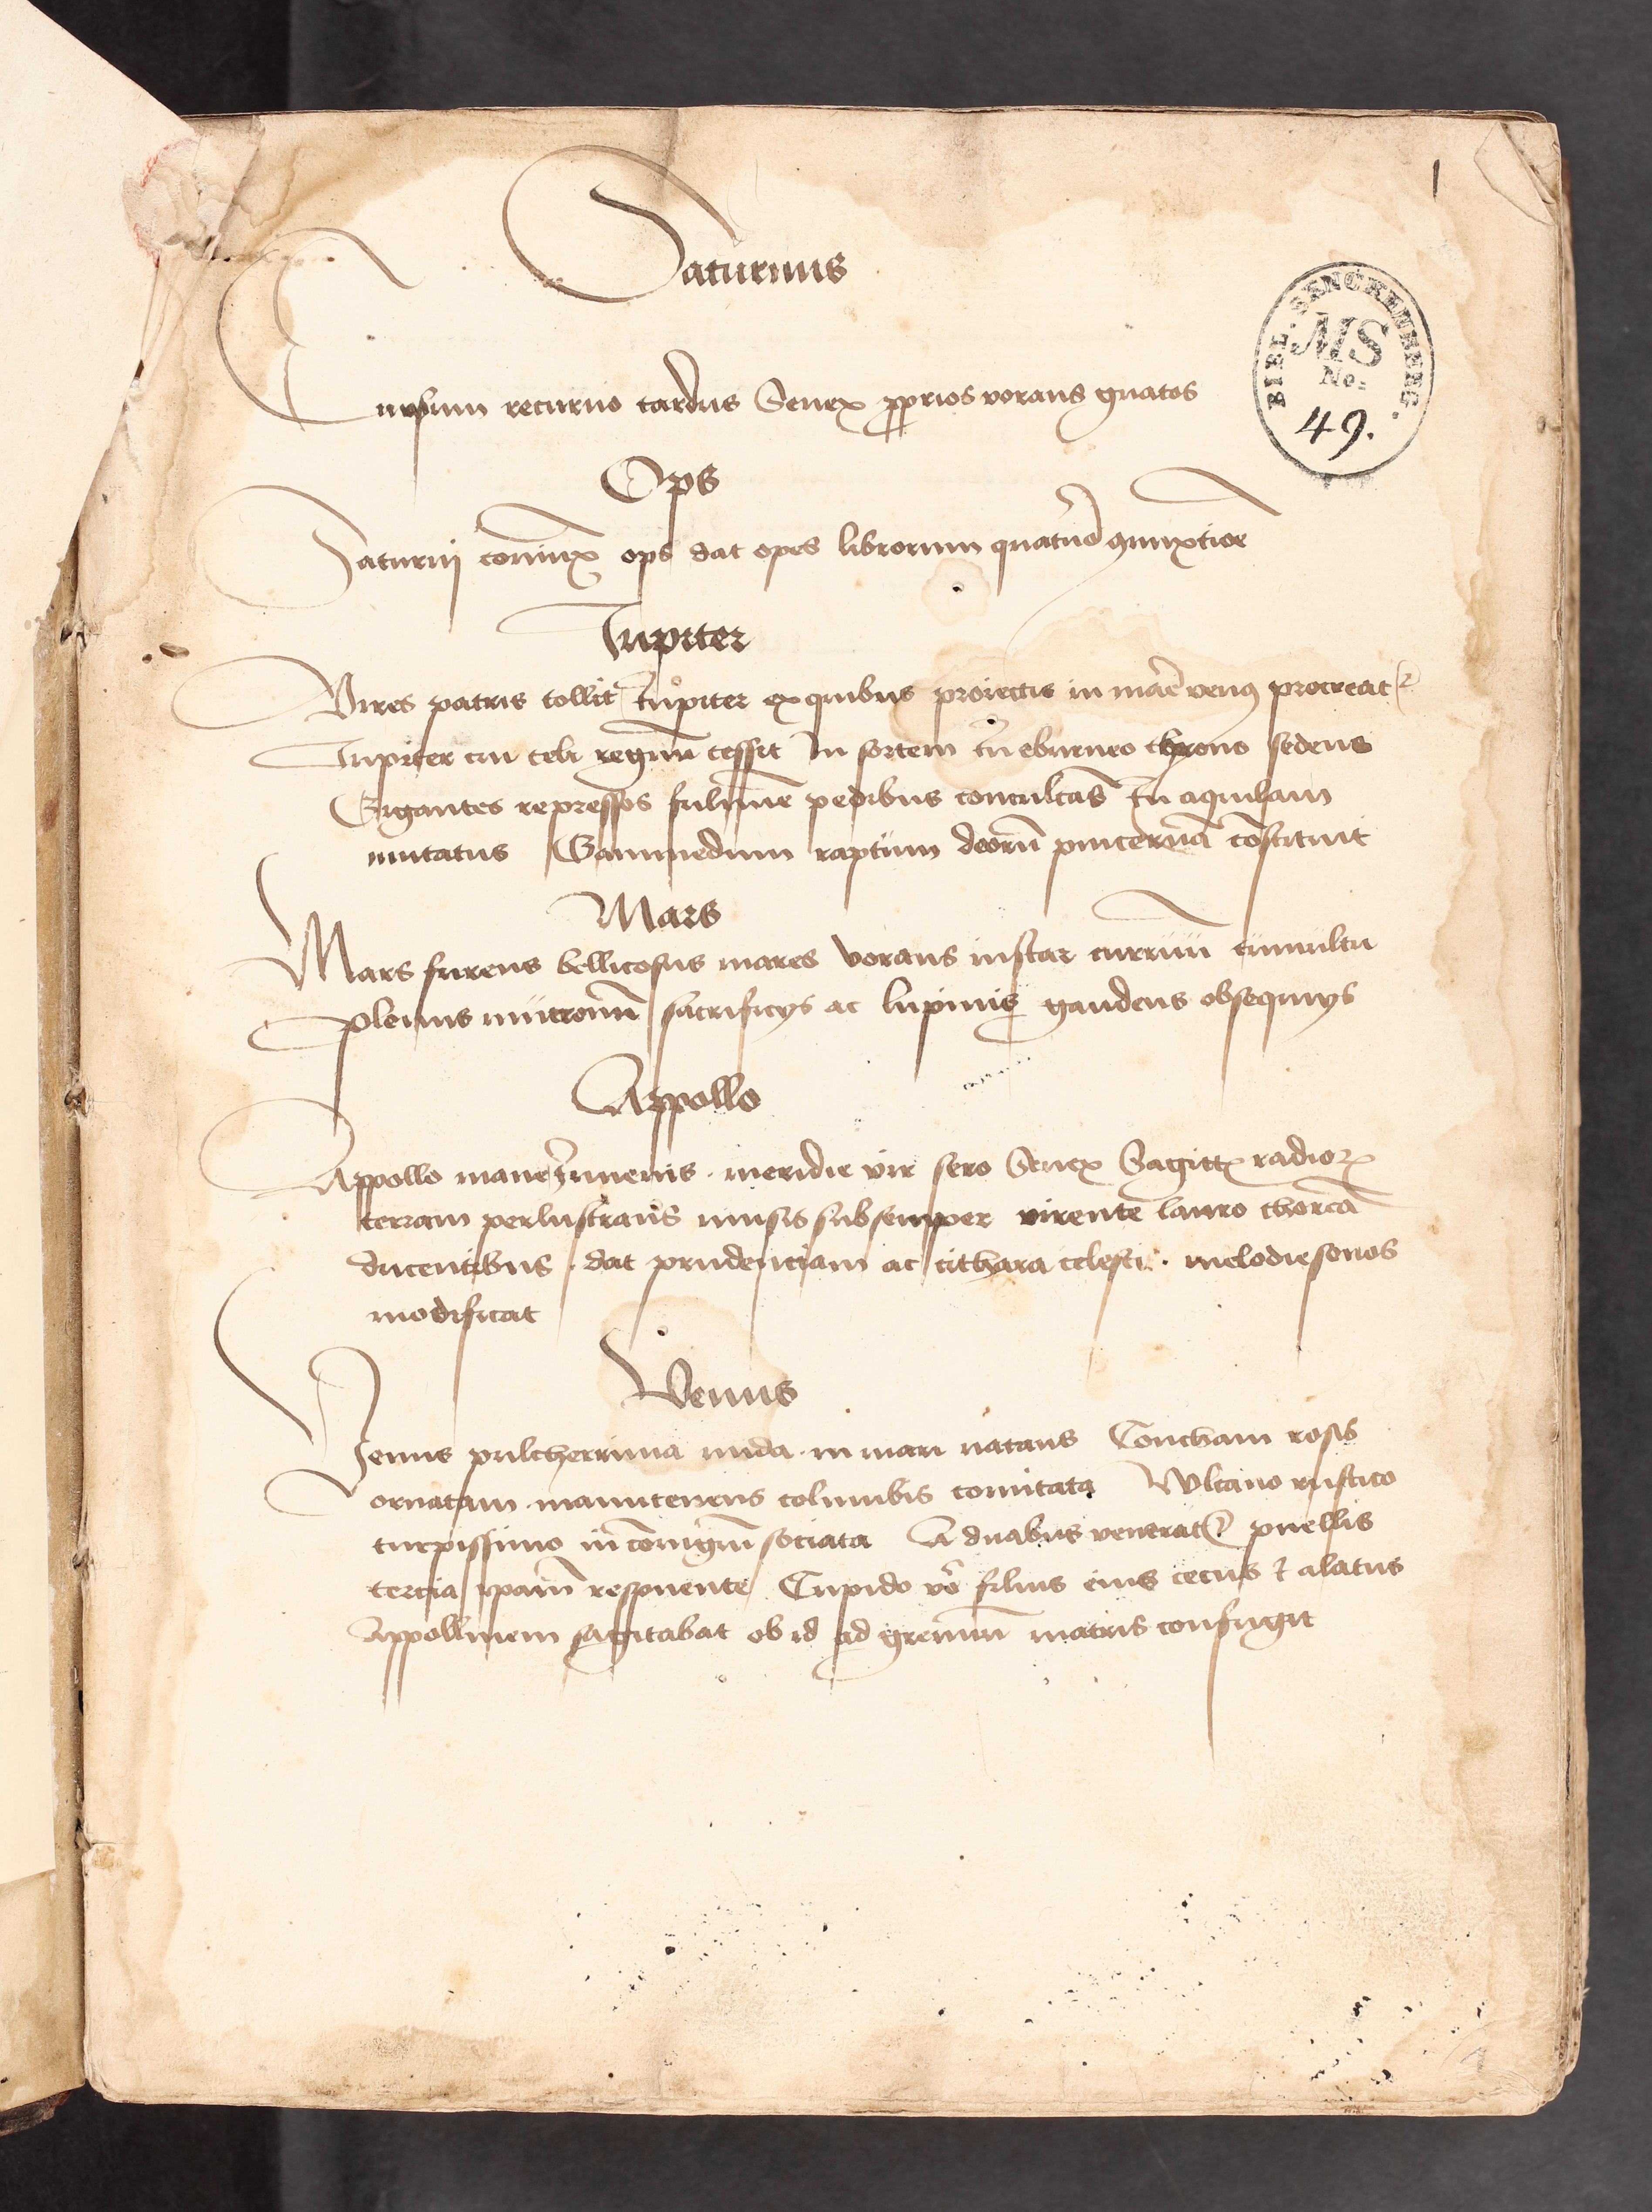 1
Saturnus
BIBL. SENCKENBERG.
MS
No.
49.
Cursum recuruo tardus Senex pprios vorans gnatos
Ops
Saturnj coniunx ops dat opes librorum
Jupiter
Vires patris tollit Jupiter ex quibus proiectis in mare venus procreatr
Jupiter cui celi regnum cessit In sortem in eburneo throno sedens
Gigantes repressos fulmine pedibus conculcās In aquilam
mutatus Ganimedum raptum deorū pincernā cōstituit
Mars
Mars furens bellicosus mares vorans instar curruū tumultu
plenus sacrificijs ac lupinis gaudens obsequijs
Appollo
Appollo mane Juuenis . meridie vir sero Senex Sagitta radiorum
terram perlustrans musis sub semper virente lauro choreā
ducentibus . dat prudenciam ac cithara celesti . melodie sonos
modificat
Venus
Venus pulcherrima nuda in mari natans Concham rosis
ornatam manutenens columbis comitata Wlcano rustico
turpissimo in cōiugiū sociata A duabus veneratr puellis
tercia ipam respuente Cupido vo filius eius cecus et alatus
Appollinem sagitabat ob id ad gremiū matris confugit